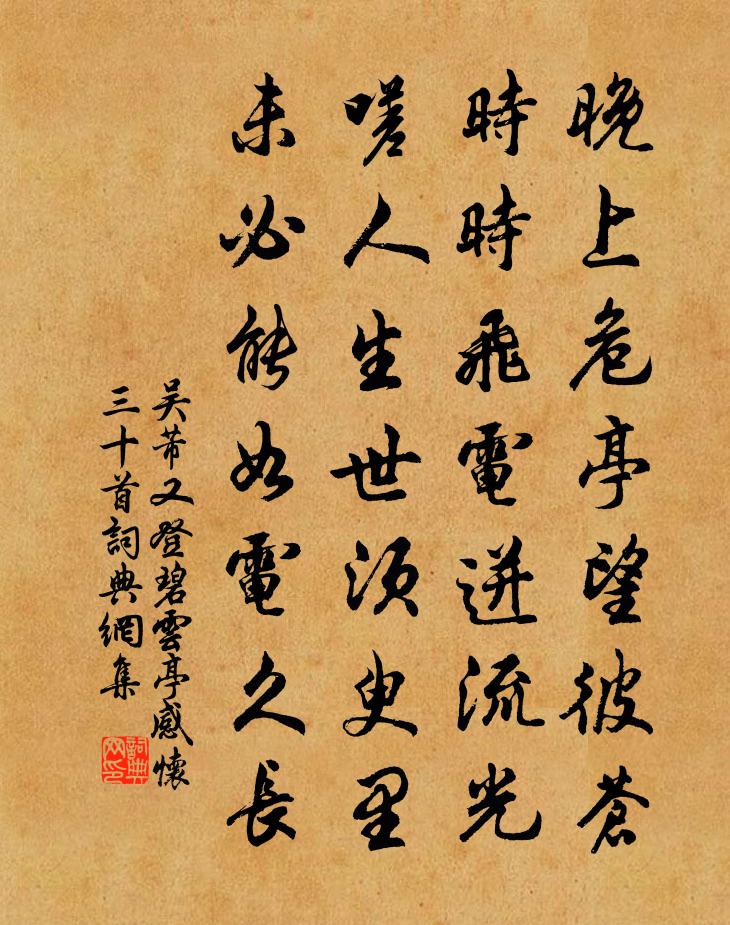 晚上危亭望彼蒼
時時飛電迸流光
嗟人生世須臾里
未必能如電久長
吴芾又登碧雲亭感懷
三十首詞典網集
詞典
网印